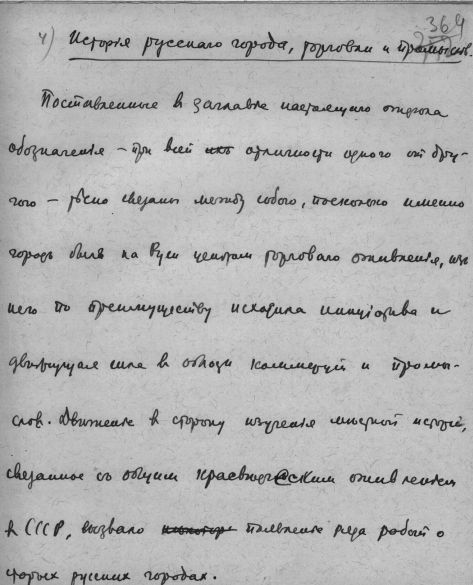 364
4) Исторія русскаго города, торговли и промыслов.
Поставленные в заглавіе настоящаго отдела
обозначенія – при всей отличности одного от дру-
гого – тѣсно связаны между собою, поскольку именно
городъ былъ на Руси центром торговаго оживленія, из
него по преимуществу исходила инициатива и
движущая сила в области коммерции и промы-
слов. Движение в сторону изученія местной исторіи,
связанное съ общим краеведческим оживленіем
в СССР, вызвало появление ряда работ о
старых русских городах.